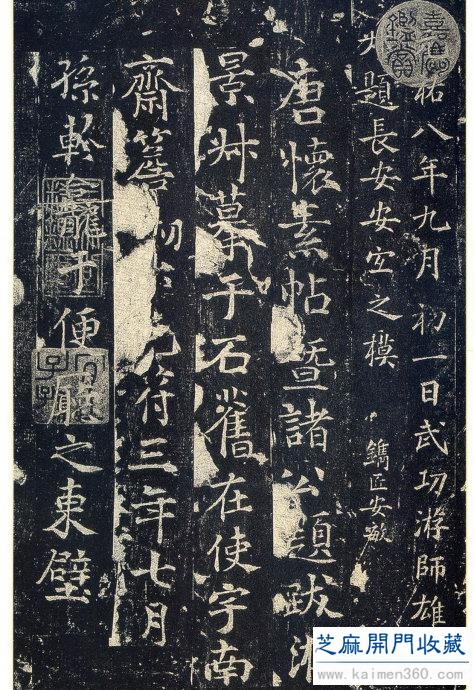 祐八年九月初一日武功游師雄
題長安安宜之模 鐫匠安敏
唐懷素帖暨諸公題跋游
景叔摹于石舊在使宇南
齋簷 符三年七月
孫軫 于便廳之東壁
芝麻開門收藏
www.kaimen360.com